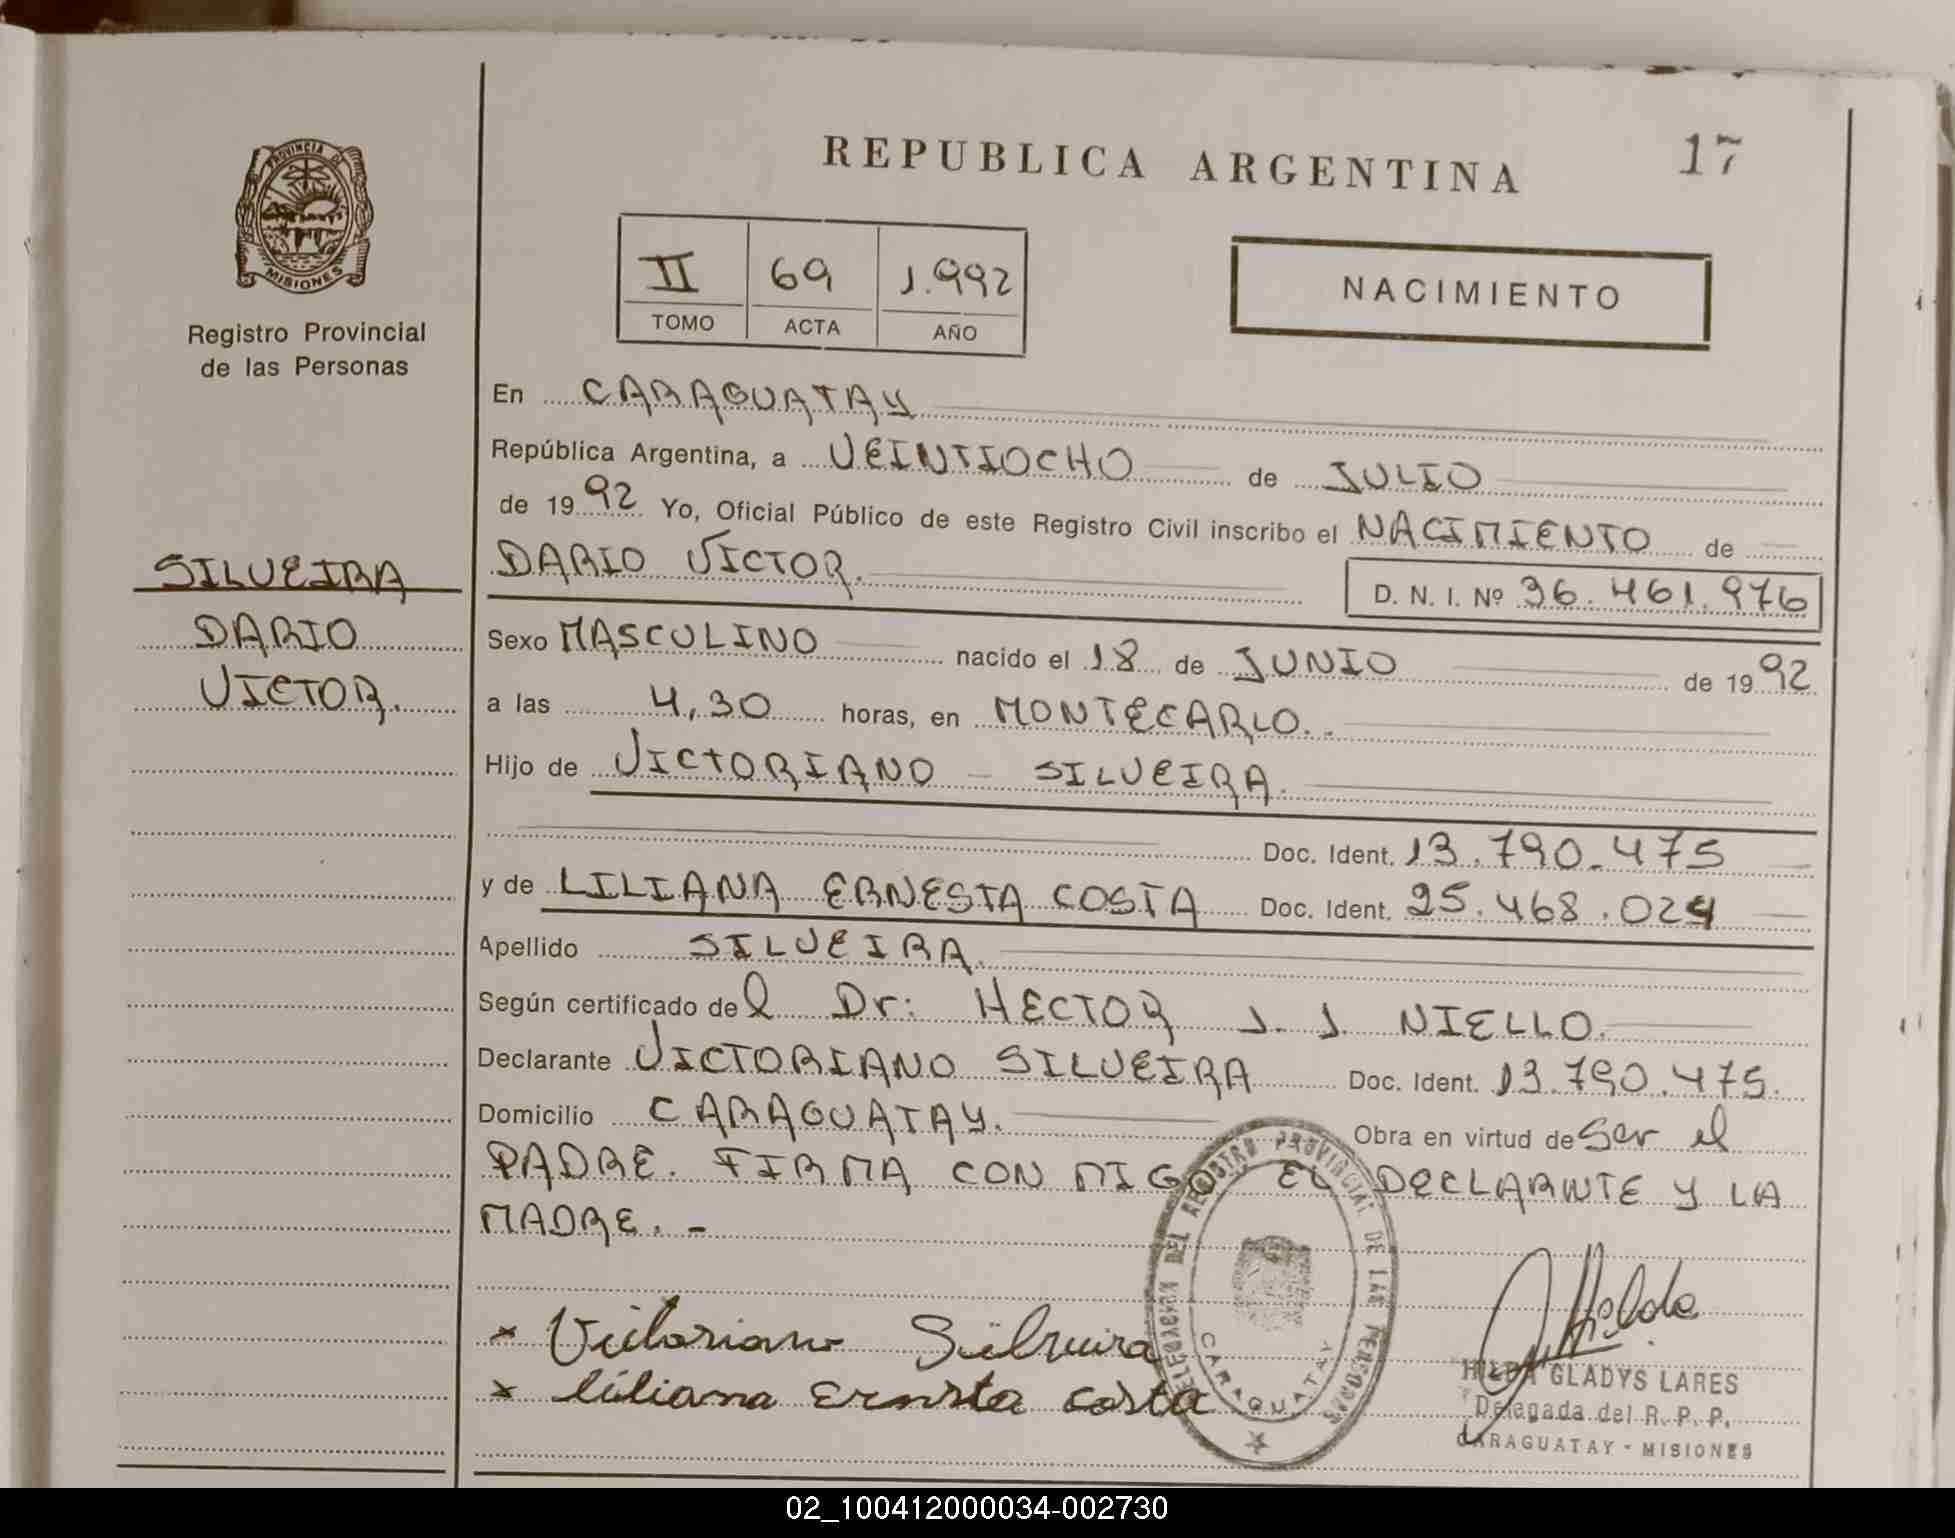 REPUBLICA ARGENTINA
17
PROVINCIA DE
MISIONES
Registro Provincial
de las Personas
II 69 1.992
TOMO ACTA AÑO
NACIMIENTO
En CARAGUATAY
República Argentina, a VEINTIOCHO de JULIO
de 1992 Yo, Oficial Público de este Registro Civil inscribo el NACIMIENTO de
DARIO VICTOR.
D. N. I. Nº 36.461.976
SILVEIRA
DARIO
VICTOR.
Sexo MASCULINO nacido el 18 de JUNIO de 1992
a las 4,30 horas, en MONTECARLO..
Hijo de VICTORIANO - SILVEIRA.
Doc. Ident. 13.790.475
y de LILIANA ERNESTA COSTA Doc. Ident. 25.468.024
Apellido SILVEIRA.
Según certificado del Dr: HECTOR J. J. NIELLO.
Declarante VICTORIANO SILVEIRA Doc. Ident. 13.790.475.
Domicilio CARAGUATAY. Obra en virtud de Ser el
PADRE. FIRMA CON MIGO EL DECLARNTE Y LA
MADRE. -
x Victoriano Silveira
x Liliana Ernesta Costa
DELEGACION DEL REGISTRO PROVINCIAL DE LAS PERSONAS
CARAGUATAY
Hilda
HILDA GLADYS LARES
Delegada del R. P. P.
CARAGUATAY - MISIONES
02_100412000034-002730